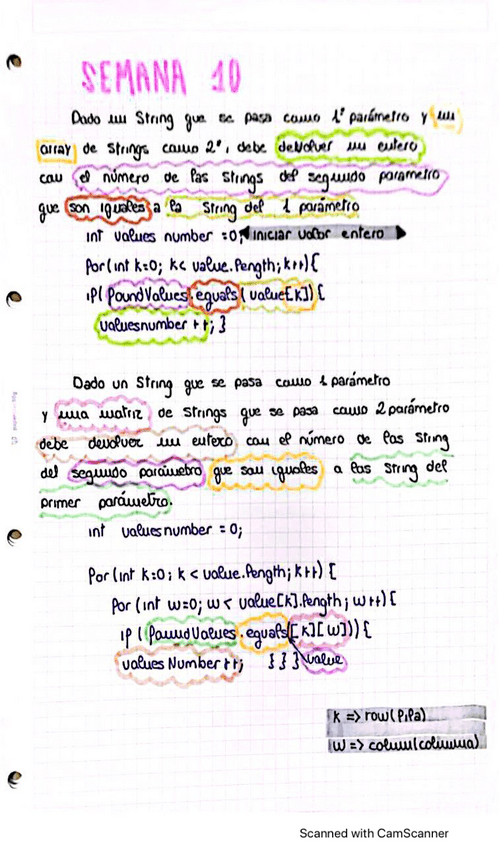 SEMANA 10
Dado un String que se pasa como 1º parámetro y un
array de Strings como 2º, debe devolver un entero
con el número de las Strings del segundo parámetro
que son iguales a la String del 1 parámetro
int values number = 0; iniciar valor entero
for(int k=0; k< value.length; k++){
if( foundValues.equals(value[k]){
valuesnumber ++; }
Dado un String que se pasa como 1 parámetro
y una matriz de Strings que se pasa como 2 parámetro
debe devolver un entero con el número de las String
del segundo parámetro que son iguales a las String del
primer parámetro.
int valuesnumber = 0;
for(int k=0; k < value.length; k++) {
for (int w=0; w < value[k].length; w++){
if ( foundValues.equals[k][w])){
values Number++; } } } value
k => row(fila)
w => column(columna)
Scanned with CamScanner